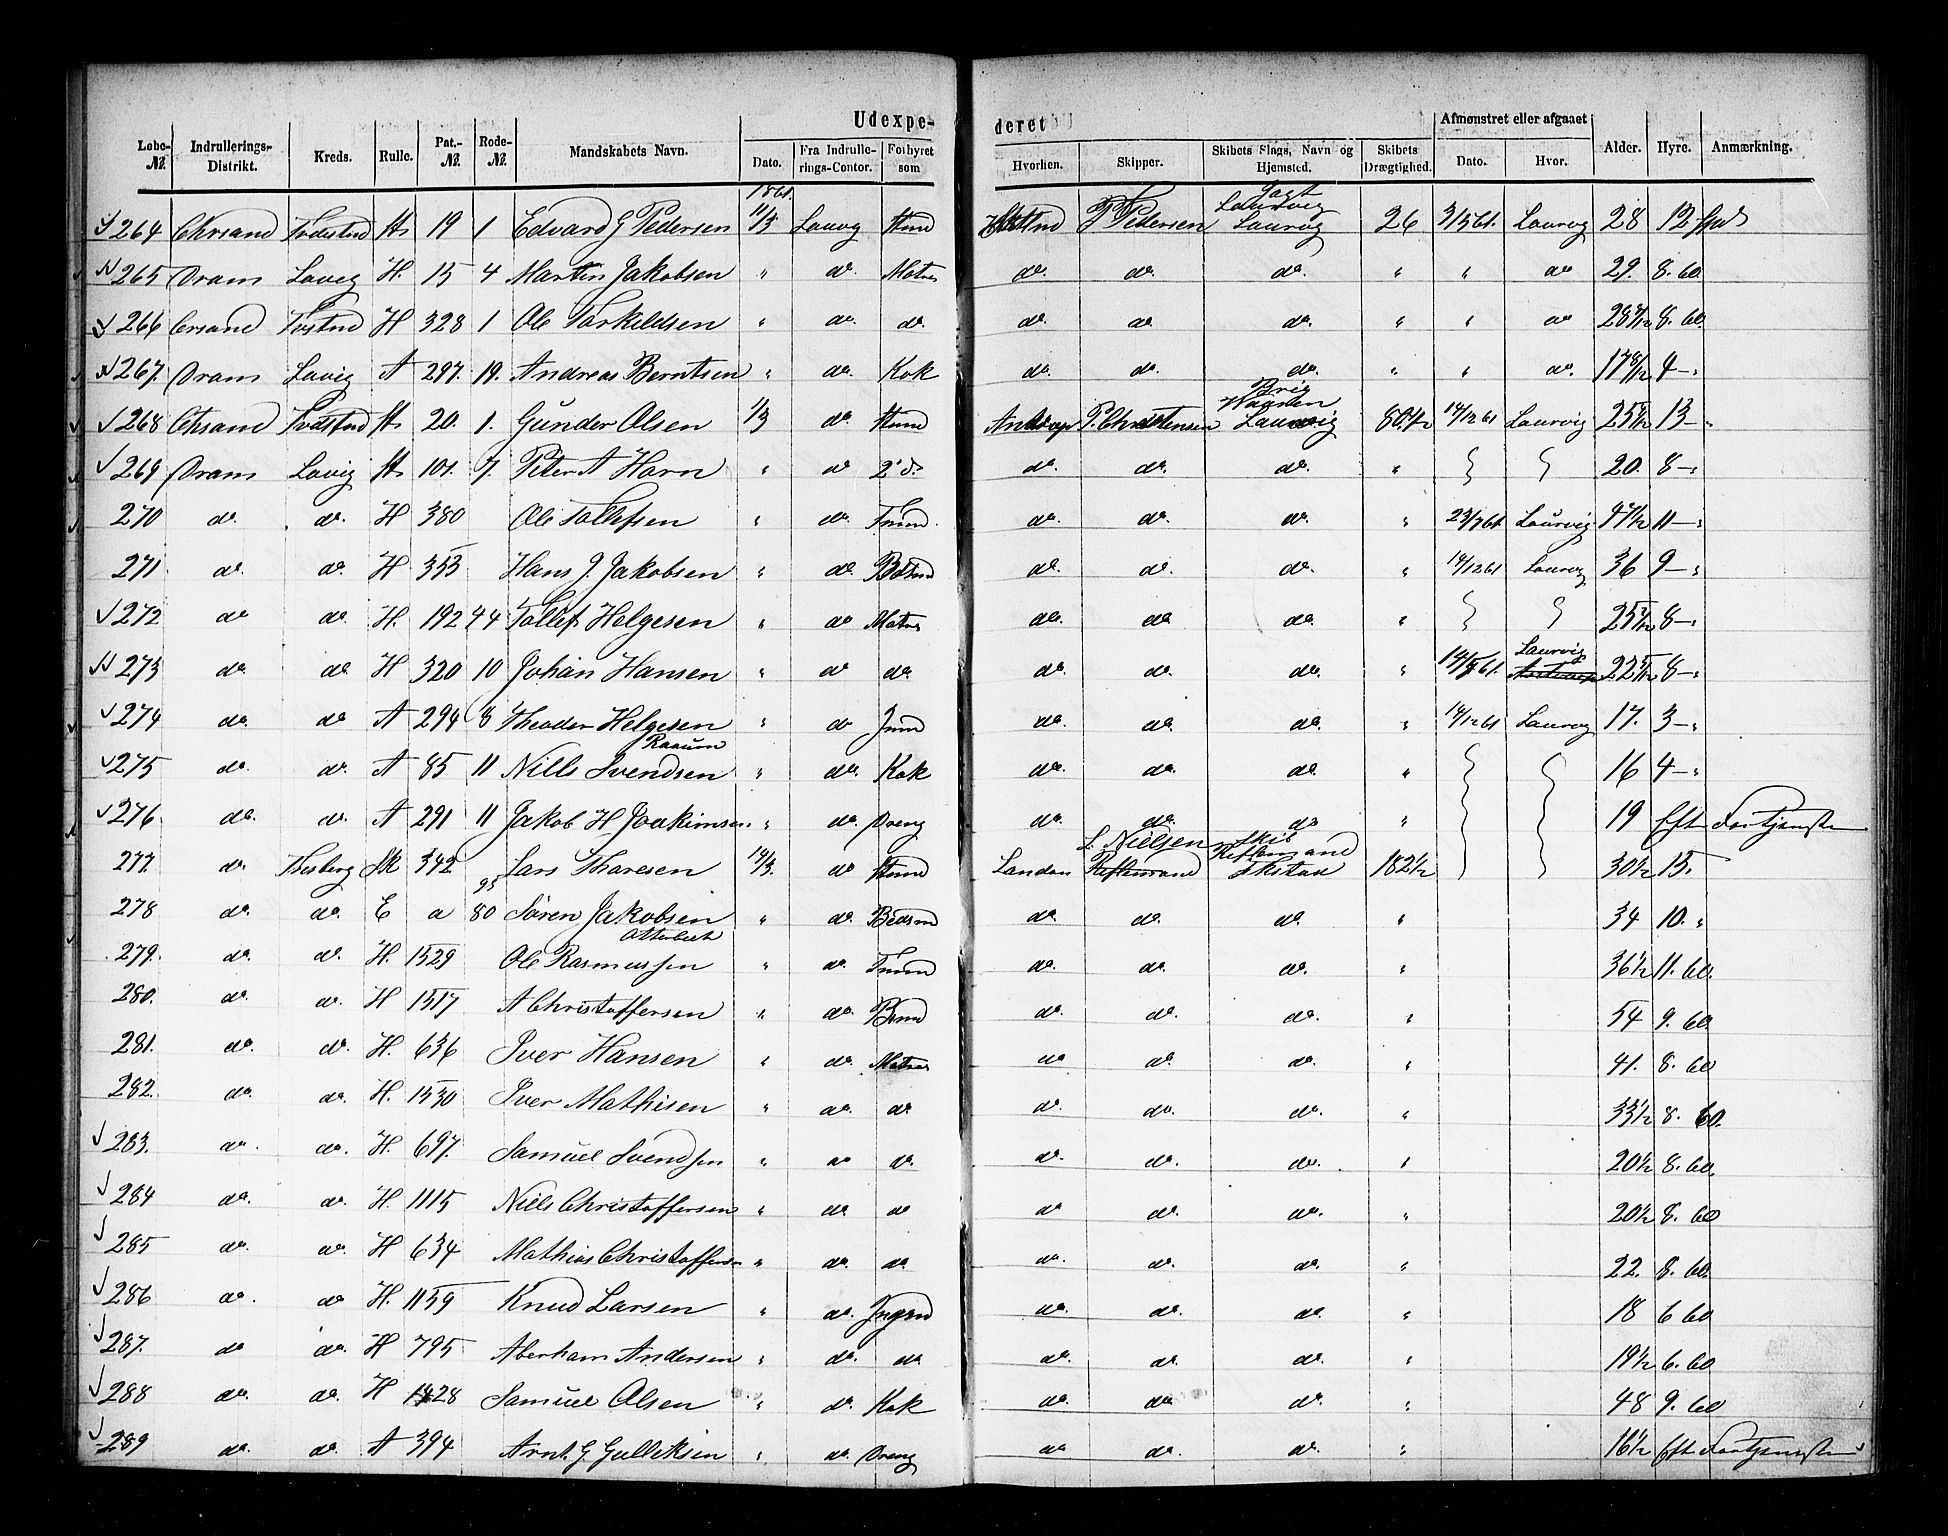 Udexpe- deret
Løbe-№. Indrullerings-Distrikt. Kreds. Rulle. Pat.-№. Rode-№. Mandskabets Navn. Dato. Fra Indrullerings-Contor. Forhyret som Hvorhen. Skipper. Skibets Flag, Navn og Hjemsted. Skibets Drægtighed. Afmønstret eller afgaaet Dato. Hvor. Alder. Hyre. Anmærkning.
1861.
264 Chrsand 19 1 Edvard G Pedersen 11/3 P Pedersen Laurvig 26 28 12
265 Dram Lavig H. 15 4 Martin Jakobsen " do. Matr do. do. do. " " do 29. 8. 60.
266 Crsand H 328 1 Ole Torkildsen " do. do. do. do. do. " " do 8. 60.
267. Dram Lavig A 297. 19. Andreas Berntsen " do. Kok do. do. do. " " do. 17 8/12 4 - "
Brig
268 Chrsand 20. 1. Gunder Olsen 1/3 do P. Christensen Laurvig 14/12 61 Laurvig 13 - "
269 Dram Lavig 101. 7. Peter A Horn " do 2' d. do. do. do. " 20. 8 - "
270 do. do. H 380 Ole Tollefsen " do. Tmmd. do. do. do. " 23/7 61 Laurvig 47 1/2 11 - "
271 do. do. H 353 Hans J. Jakobsen " do do. do. do. " 14/12 61 36 9 - "
272 do do. H. 192 44 Tollef Helgesen " do Matr do. do do " 8 - "
Laurvig
273 do. do H 320 10 Johan Hansen " do do. do. do. do. " 8 - "
274 do. do A 294 8 Theodor Helgesen " do Jmd do. do. do. " 14/12 61 17. 3 - "
Raaum
275 do. do. A 85 11 Nills Svendsen " do. Kok do. do. do " 16 4 - "
276 do. do. A 291 11 Jakob H Joakimsen " do. Dreng do. do. do " 19 Eft Fortjenste
L. Nielsen Skib
277. do. 342 95 Lars Tharesen 14/3. do London 182 1/2 30 1/2 15.
278 do. do. E a 80 Søren Jakobsen " do. Bedsmd do. do. do. " 34 10. "
Otterbech
279. do. do. H. 1529 Ole Rasmussen " do. Tmmd do. do. do. " 36 1/2 11. 60.
280. do. do. H 1517 A Christoffersen " do. do. do. do. " 54 9. 60
281. do. do. H. 636 Iver Hansen " do. Matros do do. do. " 41. 8. 60
282. do. do. H. 1530 Iver Mathisen " do. do do. do. do. " 33 1/2 8. 60.
283. do. do. H. 697. Samuel Svendsen " do do. do. do. do. " 20 1/2 8. 60.
284 do. do. H. 1115 Niels Christoffersen " do. do do do. do. " 20 1/2 8. 60
285 do. do. H 634 Mathias Christoffersen " do. do. do. do. do. " 22. 8. 60.
286 do. do H. 1159 Knud Larsen " do. Jngmd do. do. do. " 18 6 60
287. do do. H 795 Aberham Andersen " do. do do. do do. " 19 1/2 6. 60
288 do. do. H 1428 Samuel Olsen " do. Kok do. do. do. " 48 9. 60
289 do. do. A 394 Arnt. G. Gulleksen " do. Dreng do. do. do. " 16 1/2 Eft Fortjenste